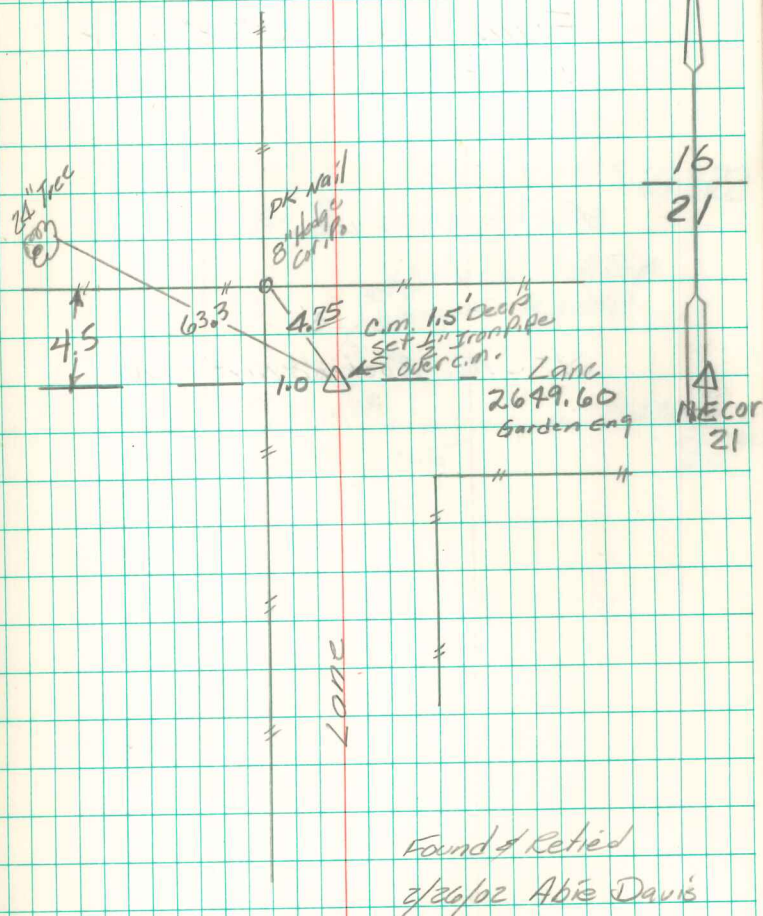 16
21
24" Tree
PK Nail
8" Hedge
Cor. Po.
4.5
63.3
4.75
C.M. 1.5' Deep
Set 1/2" Iron Pipe
over C.M.
1.0
Lane
2649.60
Garden Eng
NE Cor
21
Lane
Found & Retied
2/26/02 Abie Davis